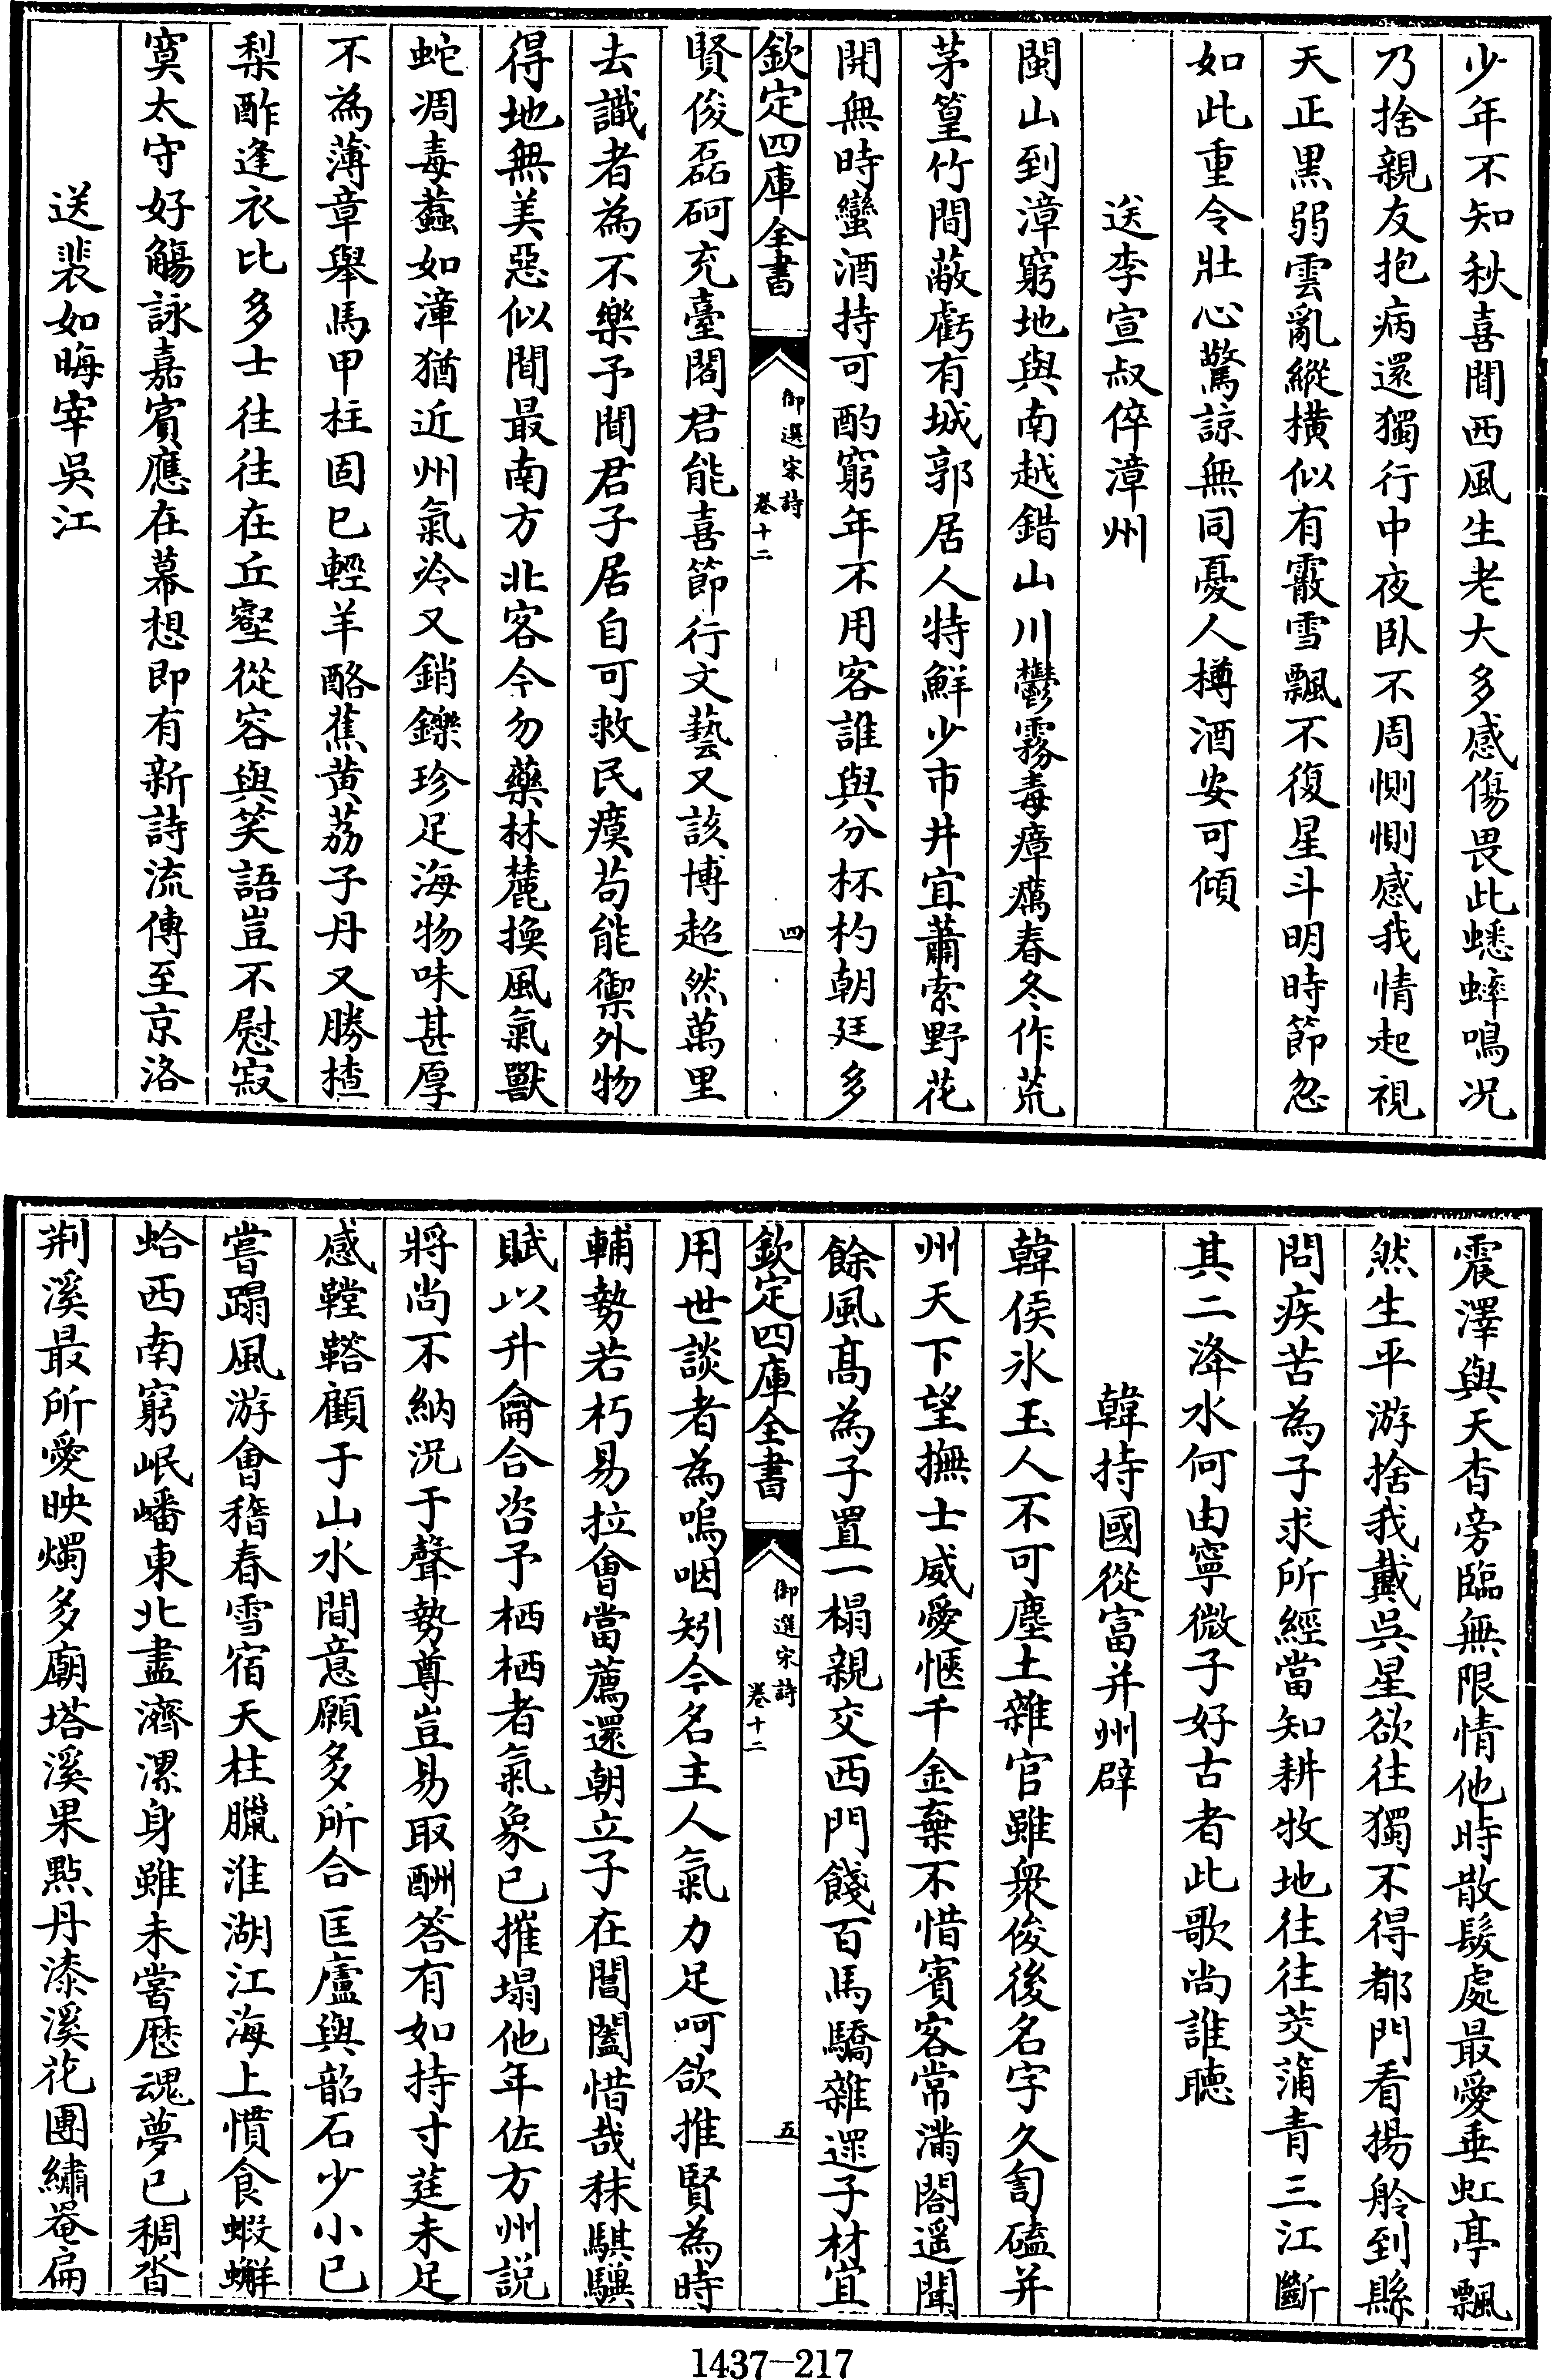 少年不知秋喜聞西風生老大多感傷畏此蟋蟀鳴况
乃捨親友抱病還獨行中夜卧不周惻惻感我情起視
天正黑弱雲亂縱橫似有霰雪飄不復星斗明時節忽
如此重令壯心驚諒無同憂人樽酒安可傾
送李宣叔倅漳州
閩山到漳窮地與南越錯山川鬱霧毒瘴癘春冬作荒
茅篁竹間蔽虧有城郭居人特鮮少市井宜蕭索野花
開無時蠻酒持可酌窮年不用客誰與分杯杓朝廷多
欽定四庫全書
御選宋詩
卷十二
四
賢俊磊砢充臺閣君能喜節行文藝又該博超然萬里
去識者為不樂予聞君子居自可救民瘼苟能禦外物
得地無美惡似聞最南方北客今勿藥林麓換風氣獸
蛇凋毒蠚如漳猶近州氣泠又銷鑠珍足海物味甚厚
不為薄章舉馬甲柱固已輕羊酪蕉黃荔子丹又勝揸
梨酢逢衣比多士往往在丘壑從容與笑語豈不慰寂
寞太守好觴詠嘉賓應在幕想即有新詩流傳至京洛
送裴如晦宰吳江
震澤與天杳旁臨無限情他時散髮處最愛垂虹亭飄
然生平游捨我戴吳星欲往獨不得都門看揚舲到縣
問疾苦為子求所經當知耕牧地往往茭蒲青三江斷
其二洚水何由寧微子好古者此歌尚誰聽
韓持國從富并州辟
韓侯氷玉人不可塵土雜官雖衆俊後名字久訇磕并
州天下望撫士威愛愜千金棄不惜賓客常滿閣遥聞
餘風高為子置一榻親交西門餞百馬驕雜遝子材宜
欽定四庫全書
御選宋詩
卷十二
五
用世談者為嗚咽矧今名主人氣力足呵欱推賢為時
輔勢若朽易拉會當薦還朝立子在閶闔惜哉秣騏驥
賦以升龠合咨予栖栖者氣象已摧塌他年佐方州説
將尚不納况于聲勢尊豈易取酬答有如持寸莛未足
感鞺鞳顧于山水間意願多所合匡廬與韶石少小已
嘗蹋風游會稽春雪宿天柱臘淮湖江海上慣食蝦蠏
蛤西南窮岷嶓東北盡濟漯身雖未嘗歷魂夢已稠沓
荆溪最所愛映燭多廟塔溪果㸃丹漆溪花團繡菴扁
1437-217